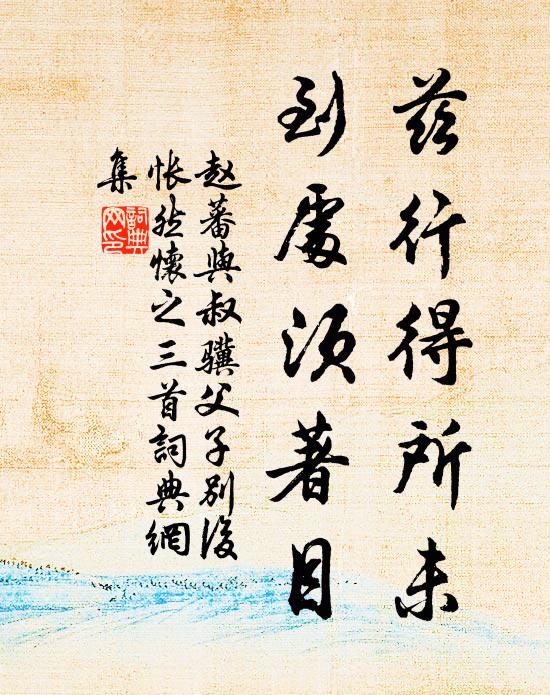 兹行得所未
到處须著目
赵蕃與叔驥父子别後
怅然懷之三首詞典網
集
詞典
网印